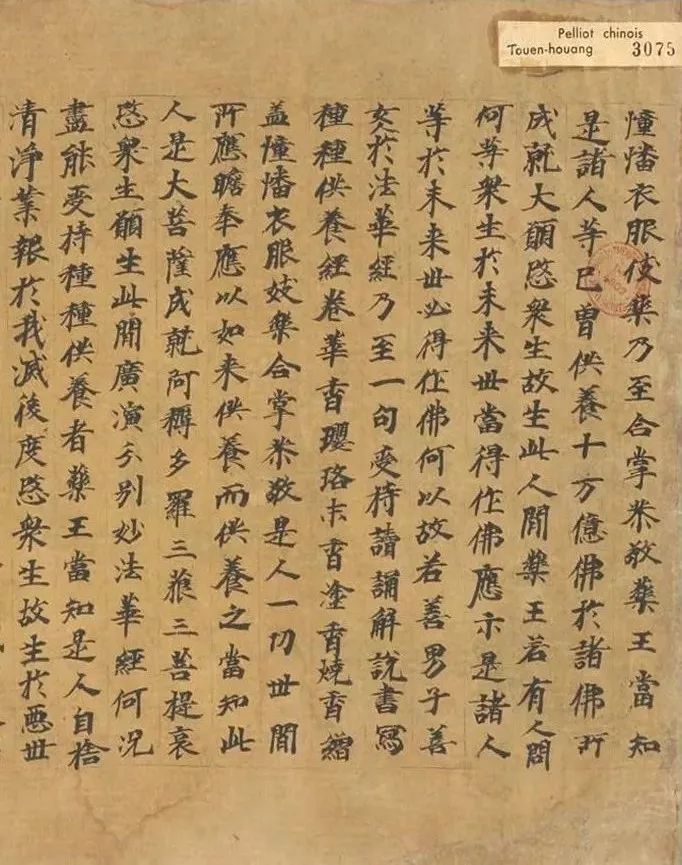 Pelliot chinois
Touen-houang 3075
幢幡衣服伎樂乃至合掌恭敬藥王當知
是諸人等已曾供養十方億佛於諸佛所
成就大願愍衆生故生此人間藥王若有人問
何等衆生於未来世當得作佛應示是諸人
等於未来世必得作佛何以故若善男子善
女於法華經乃至一句受持讀誦解說書寫
種種供養經卷華香瓔珞末香塗香燒香繒
盖幢幡衣服妓樂合掌恭敬是人一切世間
所應瞻奉應以如来供養而供養之當知此
人是大菩薩成就阿耨多羅三藐三菩提哀
愍衆生願生此間廣演分別妙法華經何况
盡能受持種種供養者藥王當知是人自捨
清淨業報於我滅後度愍衆生故生於惡世